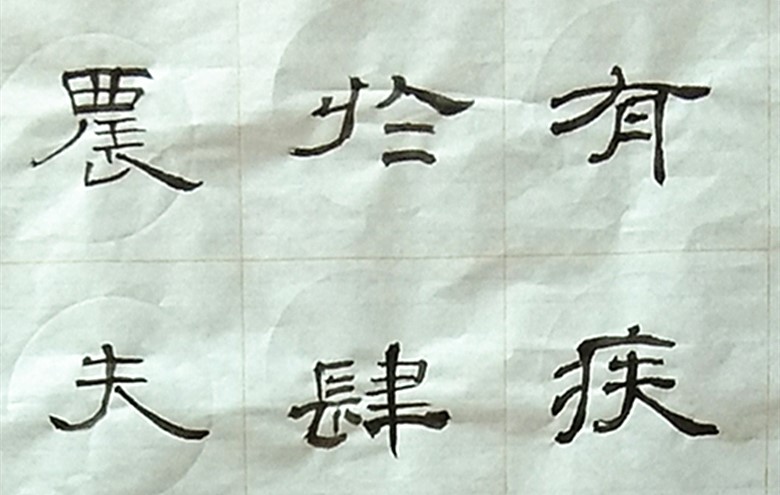 有疾
於肆
農失